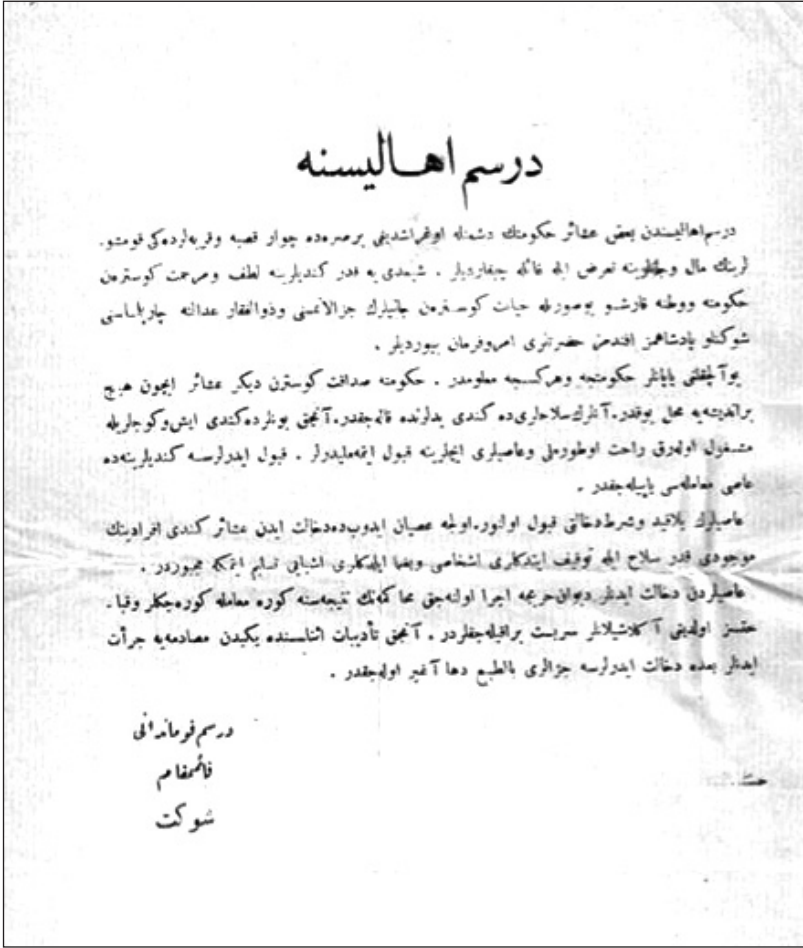 درسم اهـــاليسنه
درسم اهاليسندن بعض عشائر حكومتك دشمنله اوغراشديغی برصره‌ده جوار قصبه وقريه‌لرده‌كی قومشو.
لرينك مال و تعرض ايله غائله چيقارديلر . شيمدی يه قدر كنديلرينه لطف ومرحمت كوسترمن
حكومته ووطنه قارشو بوصورتله كوسترمن جانيلرك جزالانمسنی وذوالفقار عدالته چارپلماسنی
شوكتلو پادشاهمز افندمز حضرتلری امروفرمان بيورديلر .
بوآلچقلغی ياپانلر حكومتجه وهركسجه معلومدر . حكومته صداقت كوسترن ديكر عشائر ايچون هيچ
برانديشه‌يه محل يوقدر.آنلرك سلاحلری ده كندی يدلرنده قاله‌جقدر.آنجق بونلرده كندی ايش وكوجلريله
مشغول اوله‌رق راحت اوطورملی وعاصيلری ايچلرينه قبول ايتمه‌ليدرلر . قبول ايدرلرسه كنديلرينه‌ده
عاصی معامله‌سی ياپيله‌جقدر .
عاصيلرك بلاقيد وشرط دخالتی قبول اولنور.اولجه عصيان ايدوب‌ده دخالت ايدن عشائر كندی افرادينك
موجودی قدر سلاح ايله توقيف ايتدكلری اشخاصی ويغما ايلدكلری اشيايی تسليم ايتمكه مجبوردر .
عاصيلردن دخالت ايدنلر ديوان حربجه اجرا اولنه‌جق محاكمه‌نك نتيجه‌سنه كوره معامله كوره‌جكلر وقبا.
حتسز اولديغی آكلاشيلانلر سربست براقيله‌جقلردر . آنجق تأديبات اثناسنده يكيدن مصادمه‌يه جرأت
ايدنلر بعده دخالت ايدرلرسه جزالری بالطبع دها آغير اوله‌جقدر .
درسم قوماندانی
قائممقام
شوكت